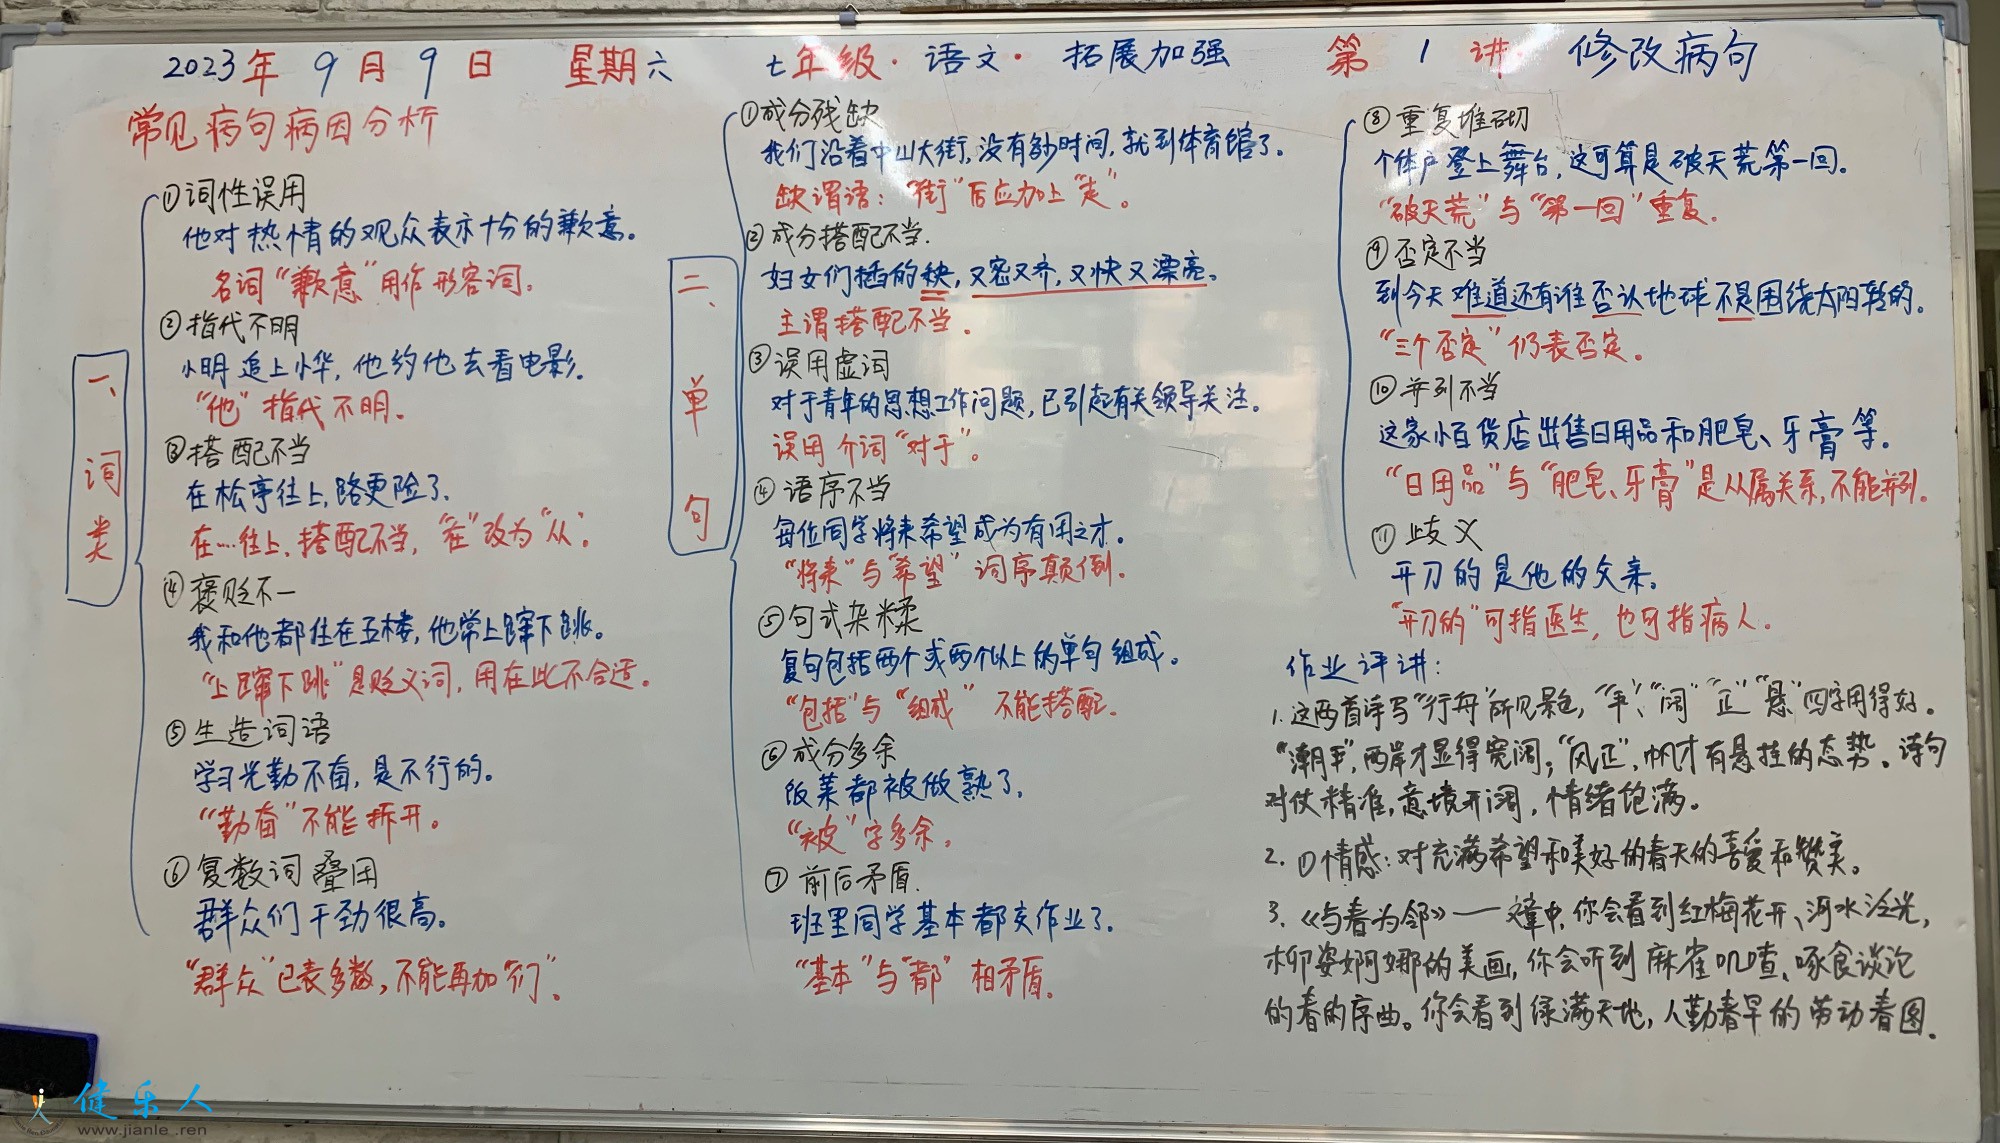 2023年9月9日 星期六 七年级·语文·拓展加强 第1讲· 修改病句
常见病句病因分析
一、词类
①词性误用
他对热情的观众表示十分的歉意。
名词“歉意”用作形容词.
②指代不明
小明追上小华,他约他去看电影.
“他”指代不明.
③搭配不当
在松亭往上,路更险了.
在…往上,搭配不当,“在”改为“从”.
④褒贬不一
我和他都住在五楼,他常上蹿下跳。
“上蹿下跳”是贬义词,用在此不合适。
⑤生造词语
学习光勤不奋,是不行的。
“勤奋”不能拆开。
⑥复数词叠用
群众们干劲很高。
“群众”已表多数,不能再加“们”.
二、单句
①成分残缺
我们沿着中山大街,没有多少时间,就到体育馆了.
缺谓语:“街”后应加上“走”。
②成分搭配不当.
妇女们插的秧,又密又齐,又快又漂亮。
主谓搭配不当.
③误用虚词
对于青年的思想工作问题,已引起有关领导关注。
误用介词“对于”.
④语序不当
每位同学将来希望成为有用之才.
“将来”与“希望”词序颠倒.
⑤句式杂糅
复句包括两个或两个以上的单句组成。
“包括”与“组成”不能搭配.
⑥成分多余
饭菜都被做熟了.
“被”字多余.
⑦前后矛盾.
班里同学基本都交作业了.
“基本”与“都”相矛盾.
⑧重复堆砌
个体户登上舞台,这可算是破天荒第一回.
“破天荒”与“第一回”重复.
⑨否定不当
到今天难道还有谁否认地球不是围绕太阳转的.
“三个否定”仍表否定.
⑩并列不当
这家小百货店出售日用品和肥皂、牙膏等.
“日用品”与“肥皂、牙膏”是从属关系,不能并列.
⑪歧义
开刀的是他的父亲.
“开刀的”可指医生,也可指病人.
作业评讲:
1.这两首诗写“行舟”所见景色,“平”、“阔”“正”“悬”四字用得好.
“潮平”,两岸才显得宽阔;“风正”,帆才有悬挂的态势。诗句
对仗精准,意境开阔,情绪饱满。
2.①情感:对充满希望和美好的春天的喜爱和赞美。
3.《与春为邻》——文章中,你会看到红梅花开、河水泛光,
柳姿婀娜的美画,你会听到麻雀叽喳、啄食谈论
的春的序曲。你会看到绿满天地,人勤春早的劳动春图.
健乐人
www.jianle.ren